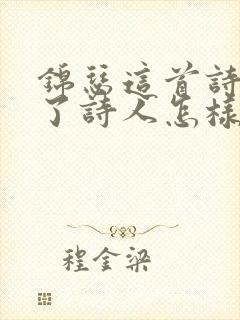 錦瑟這首詩
了詩人怎樣
程金梁